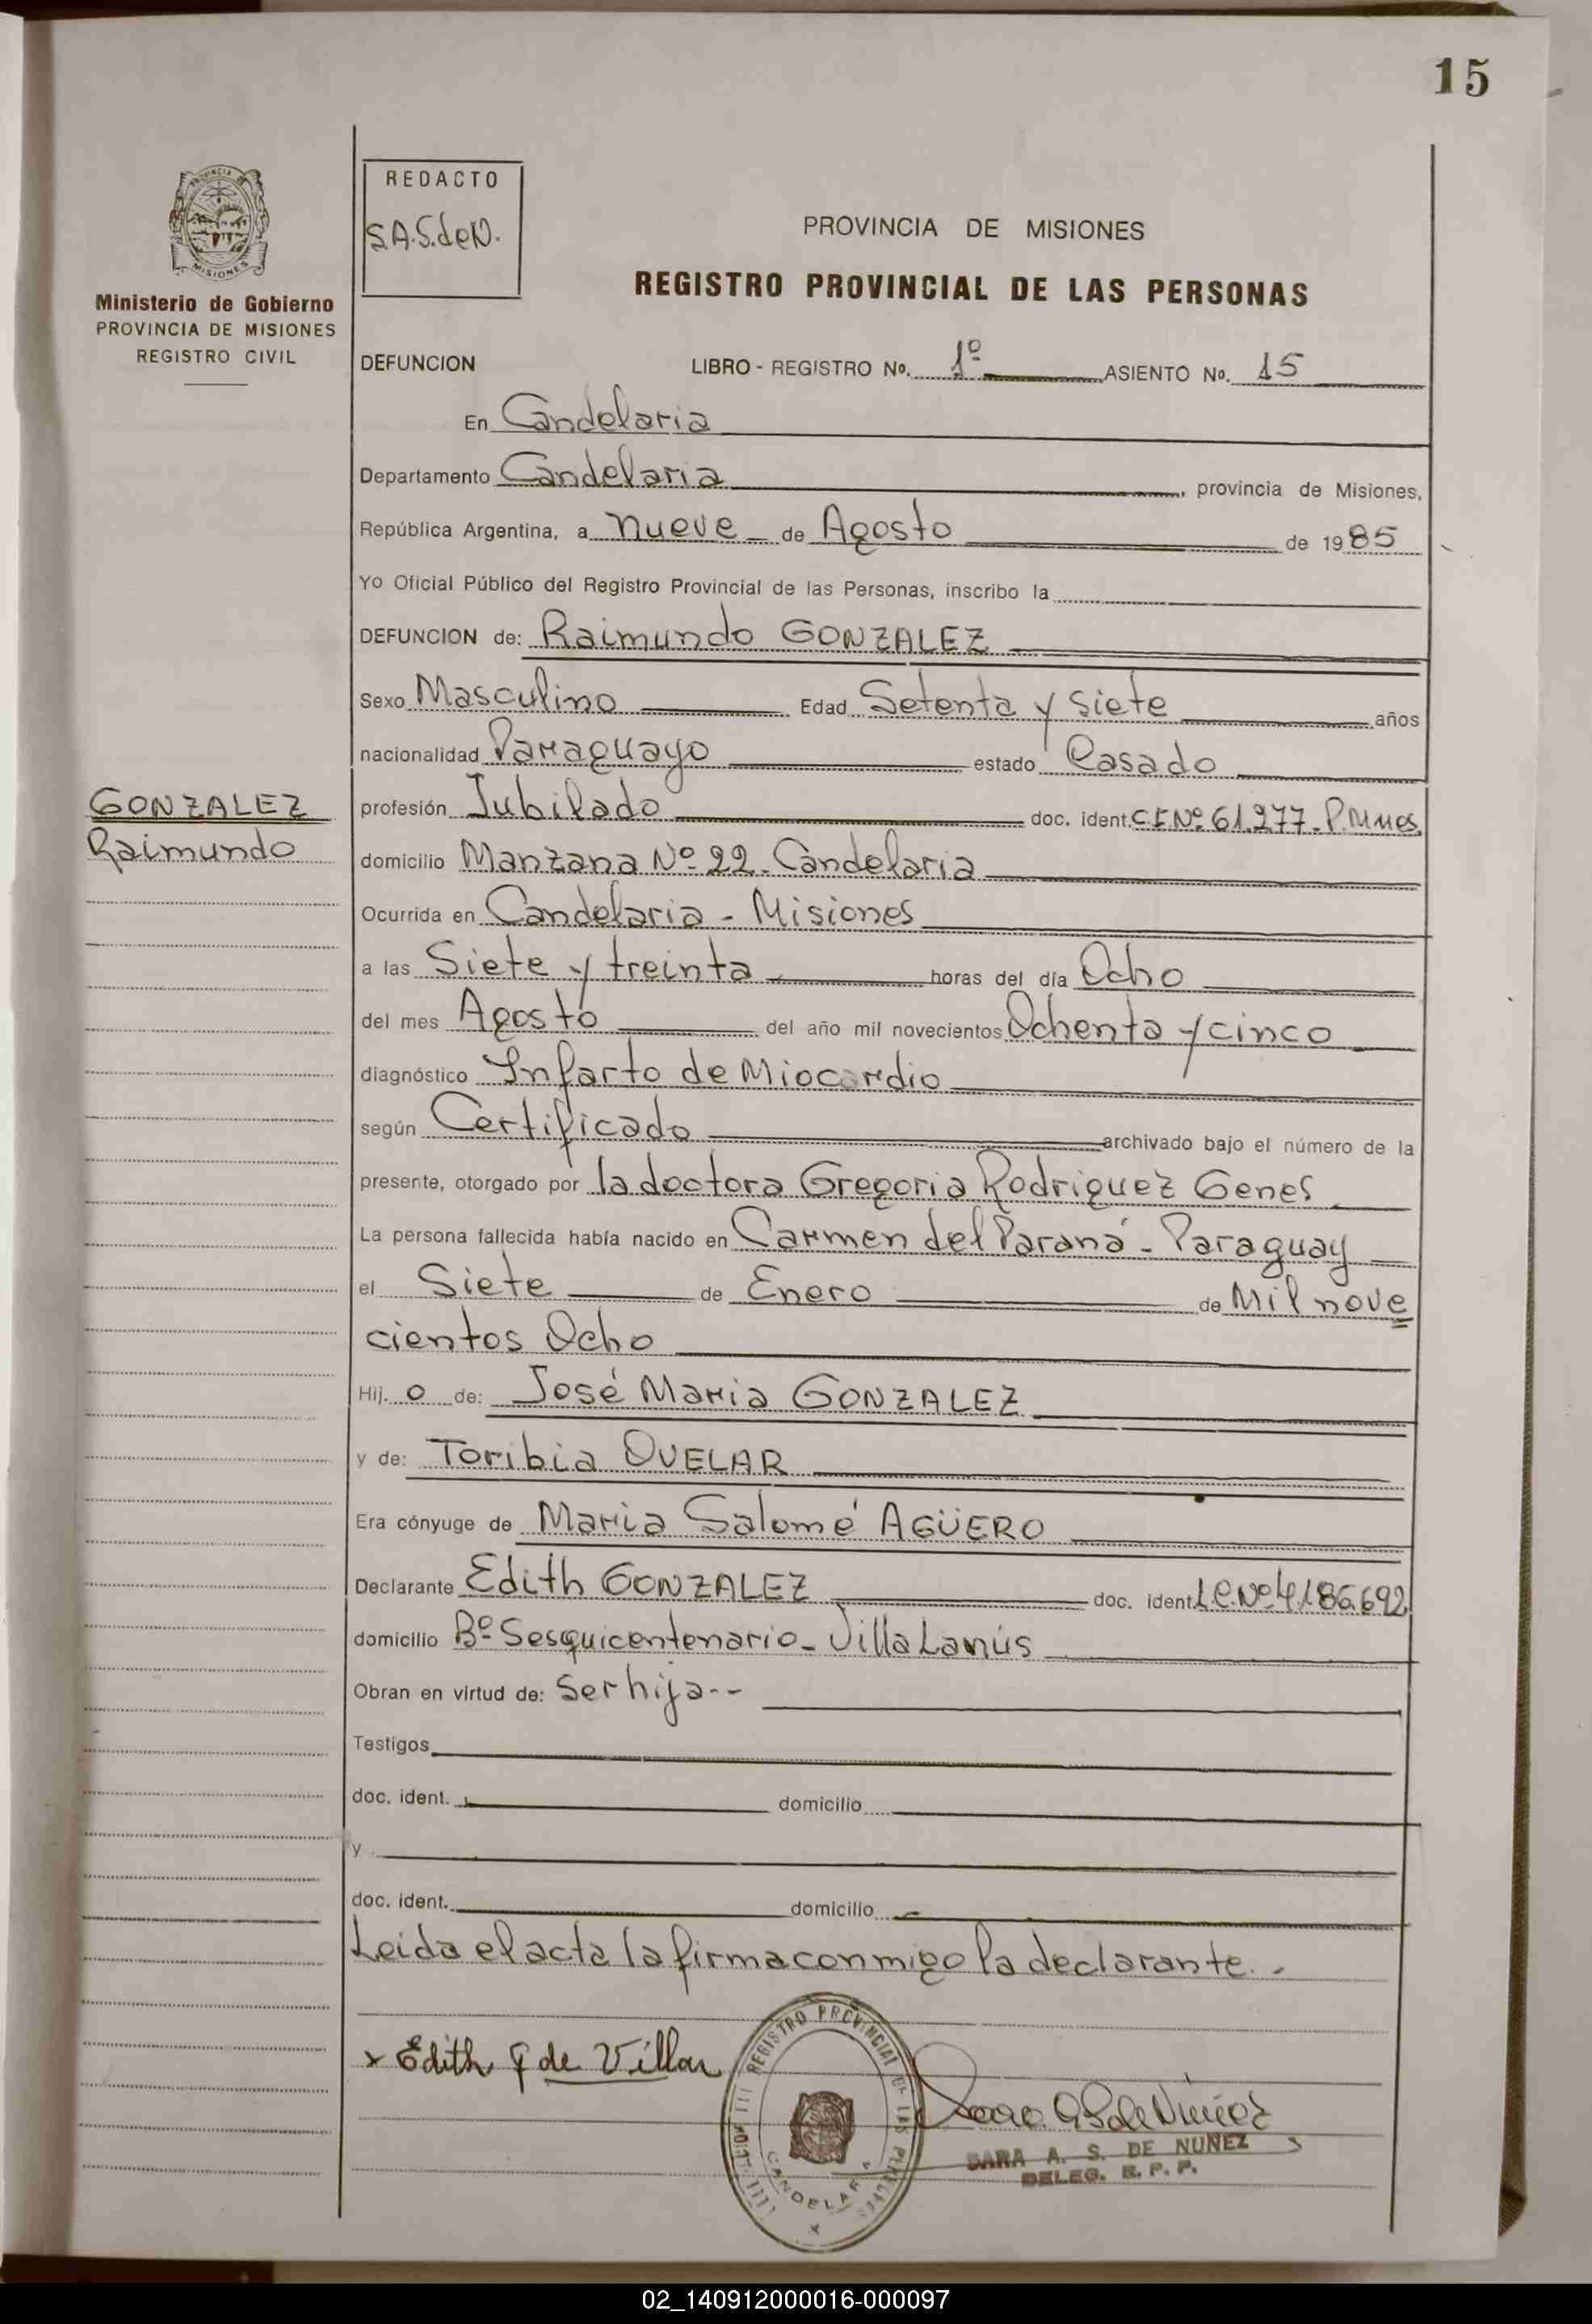 15
PROVINCIA DE
MISIONES
Ministerio de Gobierno
PROVINCIA DE MISIONES
REGISTRO CIVIL
REDACTO
S.A.S.deN.
PROVINCIA DE MISIONES
REGISTRO PROVINCIAL DE LAS PERSONAS
DEFUNCION LIBRO - REGISTRO No. 1º ASIENTO No. 15
En Candelaria
Departamento Candelaria, provincia de Misiones,
República Argentina, a nueve de Agosto de 1985
Yo Oficial Público del Registro Provincial de las Personas, inscribo la
DEFUNCION de: Raimundo GONZALEZ
Sexo Masculino Edad Setenta y siete años
nacionalidad Paraguayo estado Casado
GONZALEZ
Raimundo
profesión Jubilado doc. ident. C.I.Nº 61.277-P.Mnes.
domicilio Manzana Nº 22-Candelaria
Ocurrida en Candelaria - Misiones
a las Siete y treinta horas del día Ocho
del mes Agosto del año mil novecientos Ochenta y cinco
diagnóstico Infarto de Miocardio
según Certificado archivado bajo el número de la
presente, otorgado por la doctora Gregoria Rodriguez Genes
La persona fallecida había nacido en Carmen del Paraná - Paraguay
el Siete de Enero de Mil nove
cientos Ocho
Hij o de: José Maria GONZALEZ
y de: Toribia OVELAR
Era cónyuge de Maria Salomé AGÜERO
Declarante Edith GONZALEZ doc. ident. L.C.Nº 4.186.692
domicilio Bº Sesquicentenario - Villa Lanús
Obran en virtud de: Ser hija --
Testigos
doc. ident. domicilio
y
doc. ident. domicilio
Leida el acta la firma conmigo la declarante.-
x Edith G de Villar
REGISTRO PROVINCIAL DE LAS PERSONAS
CANDELARIA
SARA A. S. DE NUÑEZ
DELEG. R. P. P.
02_140912000016-000097